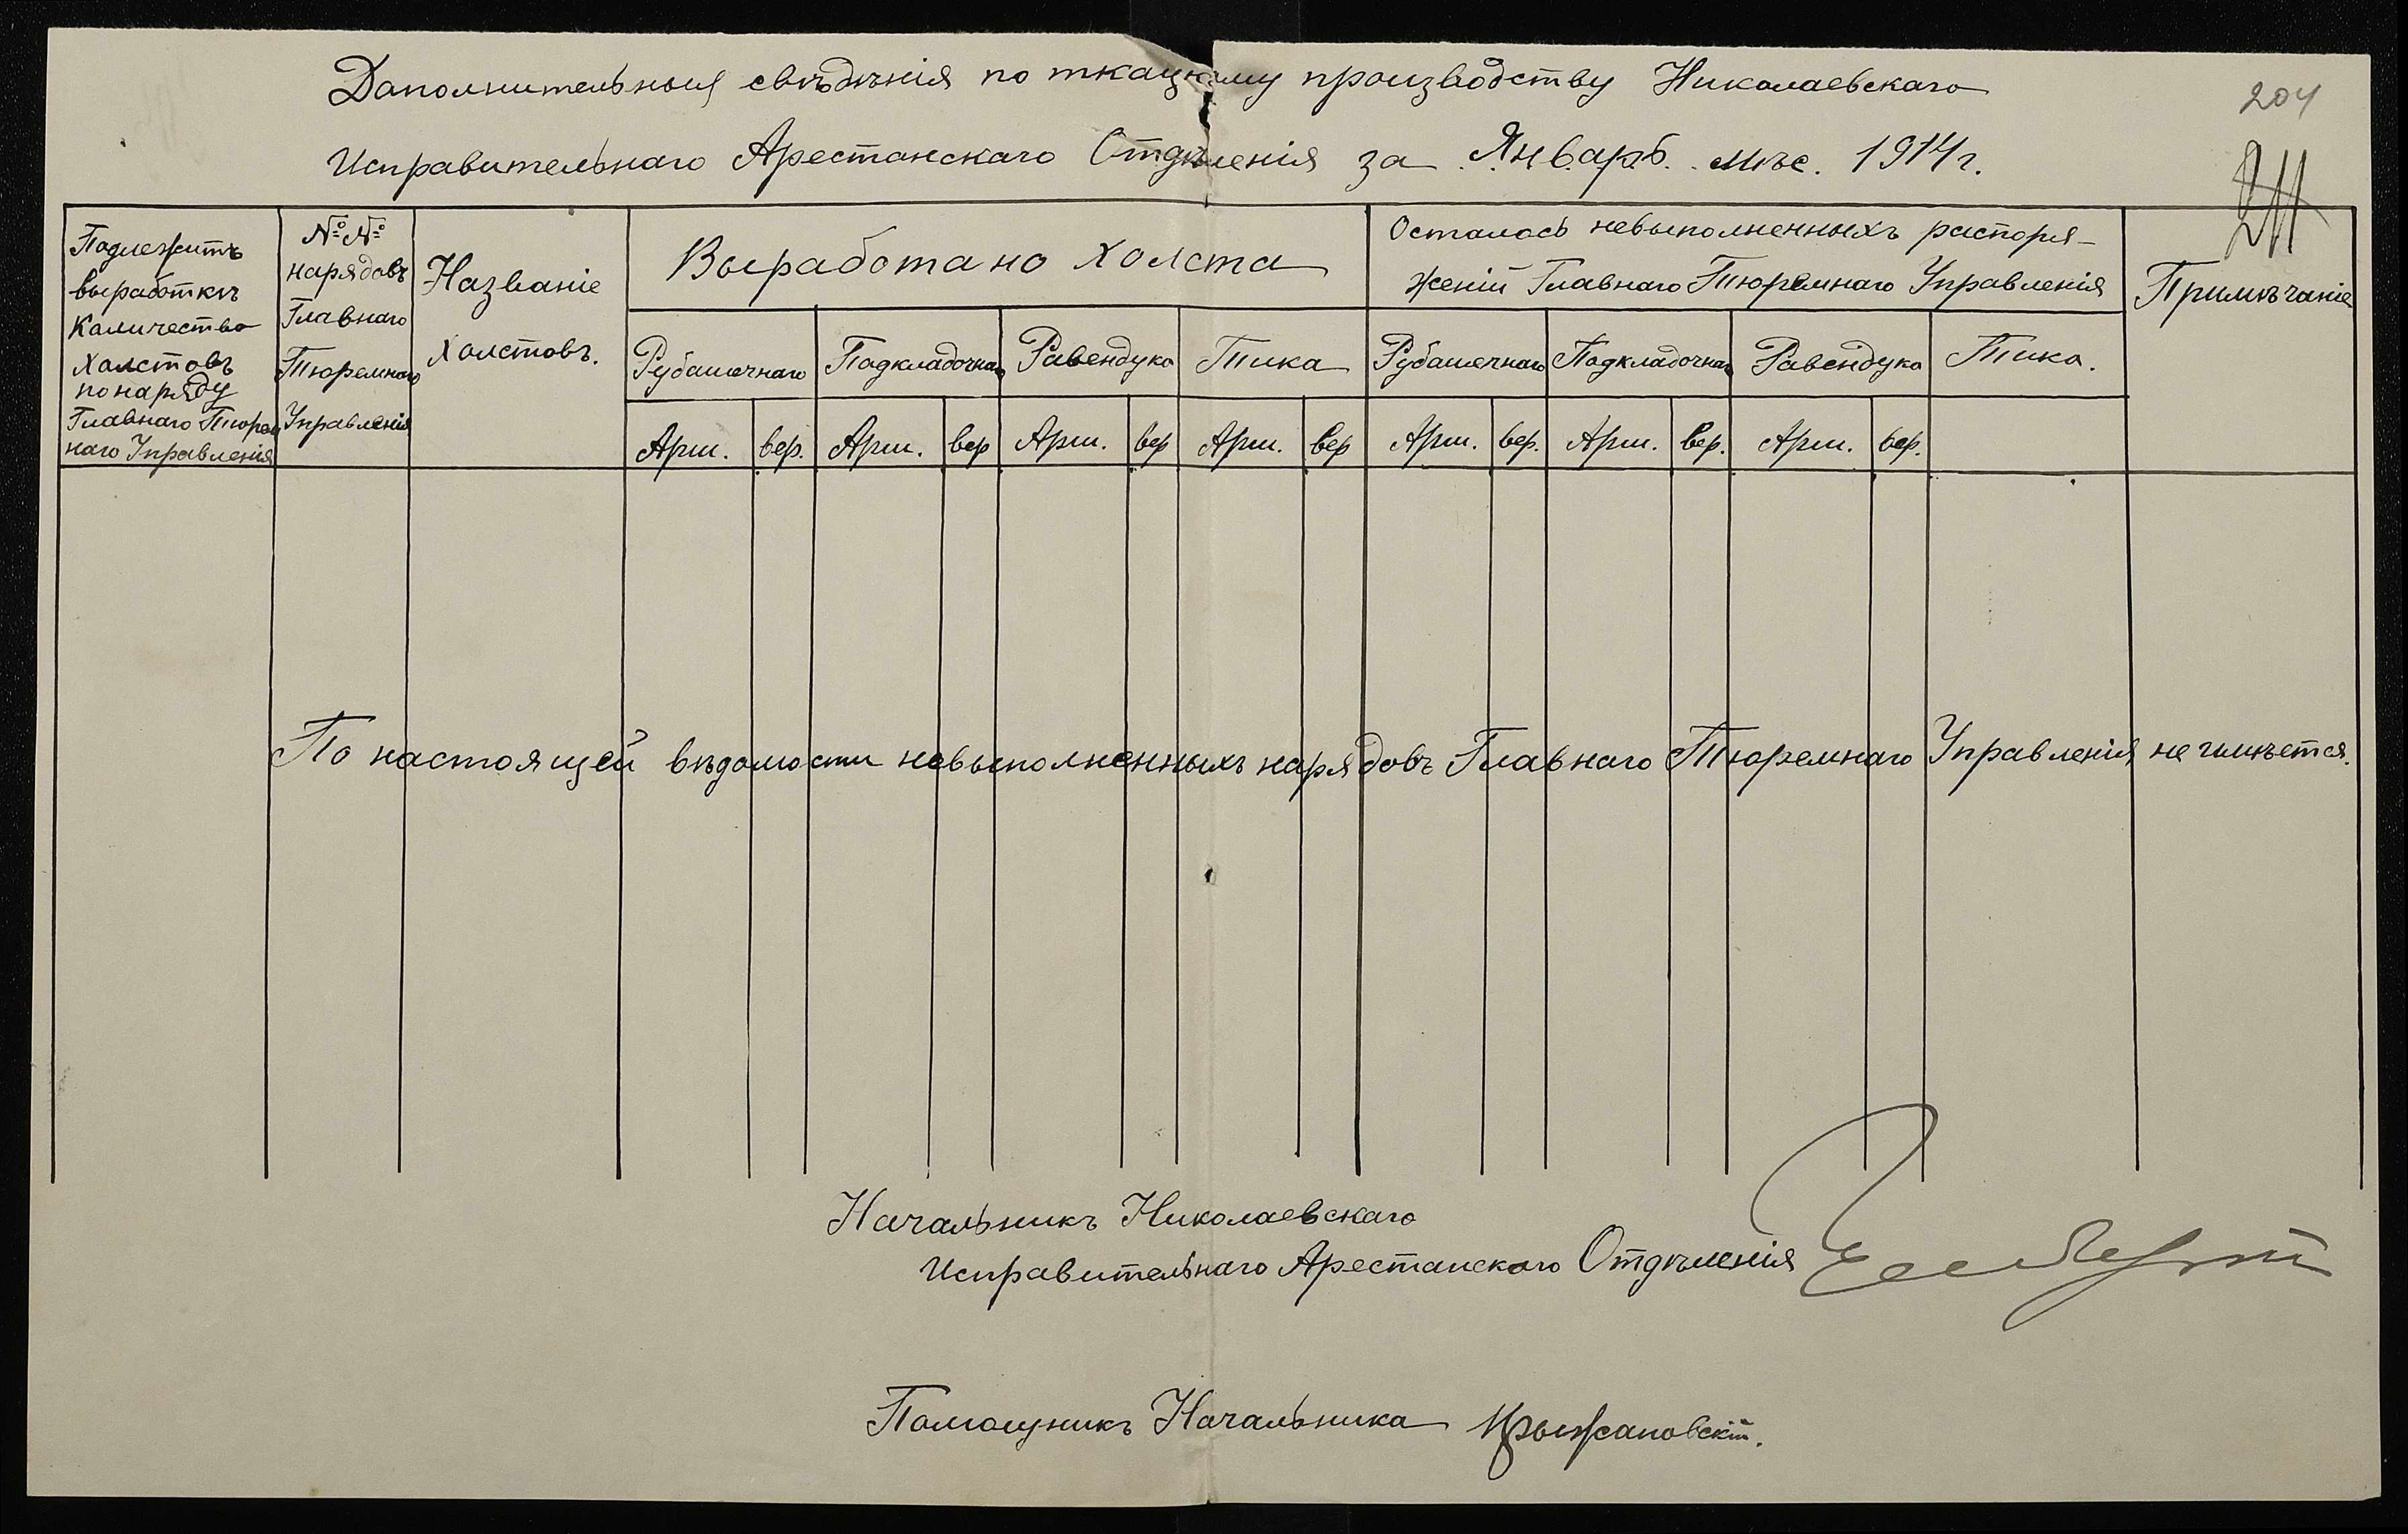 Дополнительныя свѣдѣнія по ткацкому производству Николаевскаго
204
Исправительнаго Арестанскаго Отдѣленія за Январь мѣс. 1914 г.
Подлежитъ
выработкѣ
Количество
холстовъ
по наряду
Главнаго Тюрем
наго Управленія
№№
нарядовъ
Главнаго
Тюремнаго
Управленія
Названіе
холстовъ.
Выработано холста
Осталось невыполненныхъ распоря-
женій Главнаго Тюремнаго Управленія
Примѣчаніе
Рубашечнаго Подкладочнаго Равендука Тика Рубашечнаго Подкладочнаго Равендука Тика.
Арш. вер. Арш. вер Арш. вер Арш. вер Арш. вер. Арш. вер. Арш. вер.
По настоящей вѣдомости невыполненныхъ нарядовъ Главнаго Тюремнаго Управленія не имѣется.
Начальникъ Николаевскаго
Исправительнаго Арестанскаго Отдѣленія
Помощникъ Начальника Крыжановскій.